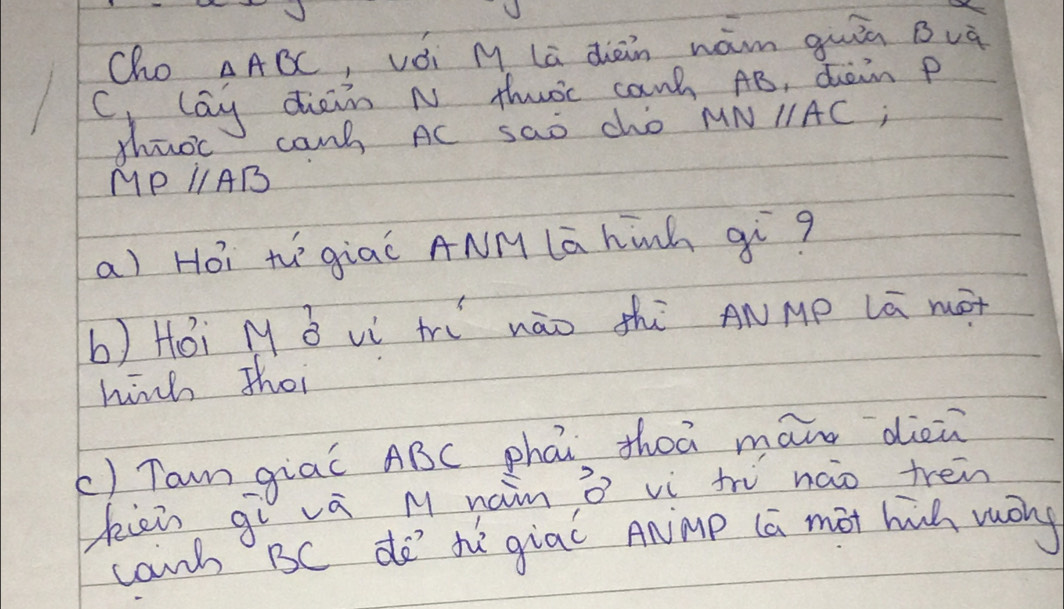 Cho △ABC, với M là điểm nằm giữa B và
C, lấy điểm N thuộc cạnh AB, điểm P
thuộc cạnh AC sao cho MN // AC;
MP // AB
a) Hỏi tứ giác ANM là hình gì?
b) Hỏi M ở vị trí nào thì ANMP là một
hình thoi
c) Tam giác ABC phải thoả mãn điều
kiện gì và M nằm ở vị trí nào trên
cạnh BC để tứ giác ANMP là một hình vuông